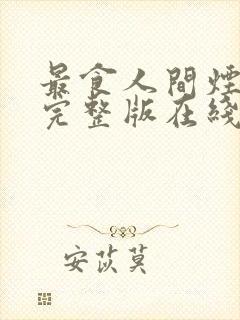 最食人間煙
完整版在綫
安苡莫